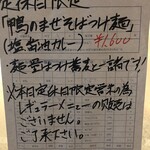 定休日限定
「鴨のまぜそばつけ麺」
(塩醤油カレー) ¥1,600
麺量はつけ蕎麦と一緒です!
※本日定休日限定営業の為
レギュラーメニューの販売は
ございません。
ご了承下さい。